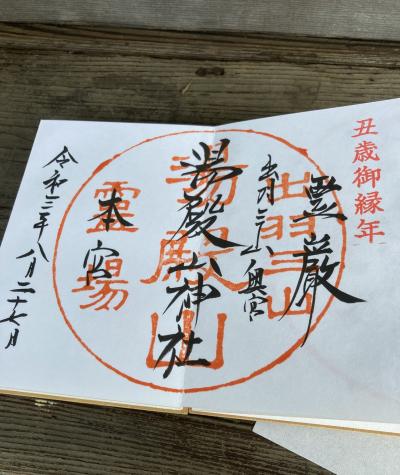 丑歳御縁年
霊巌
出羽三山奥宮
出羽三山
湯殿山神社
湯殿山
本宮
靈場
令和三年八月二十七日